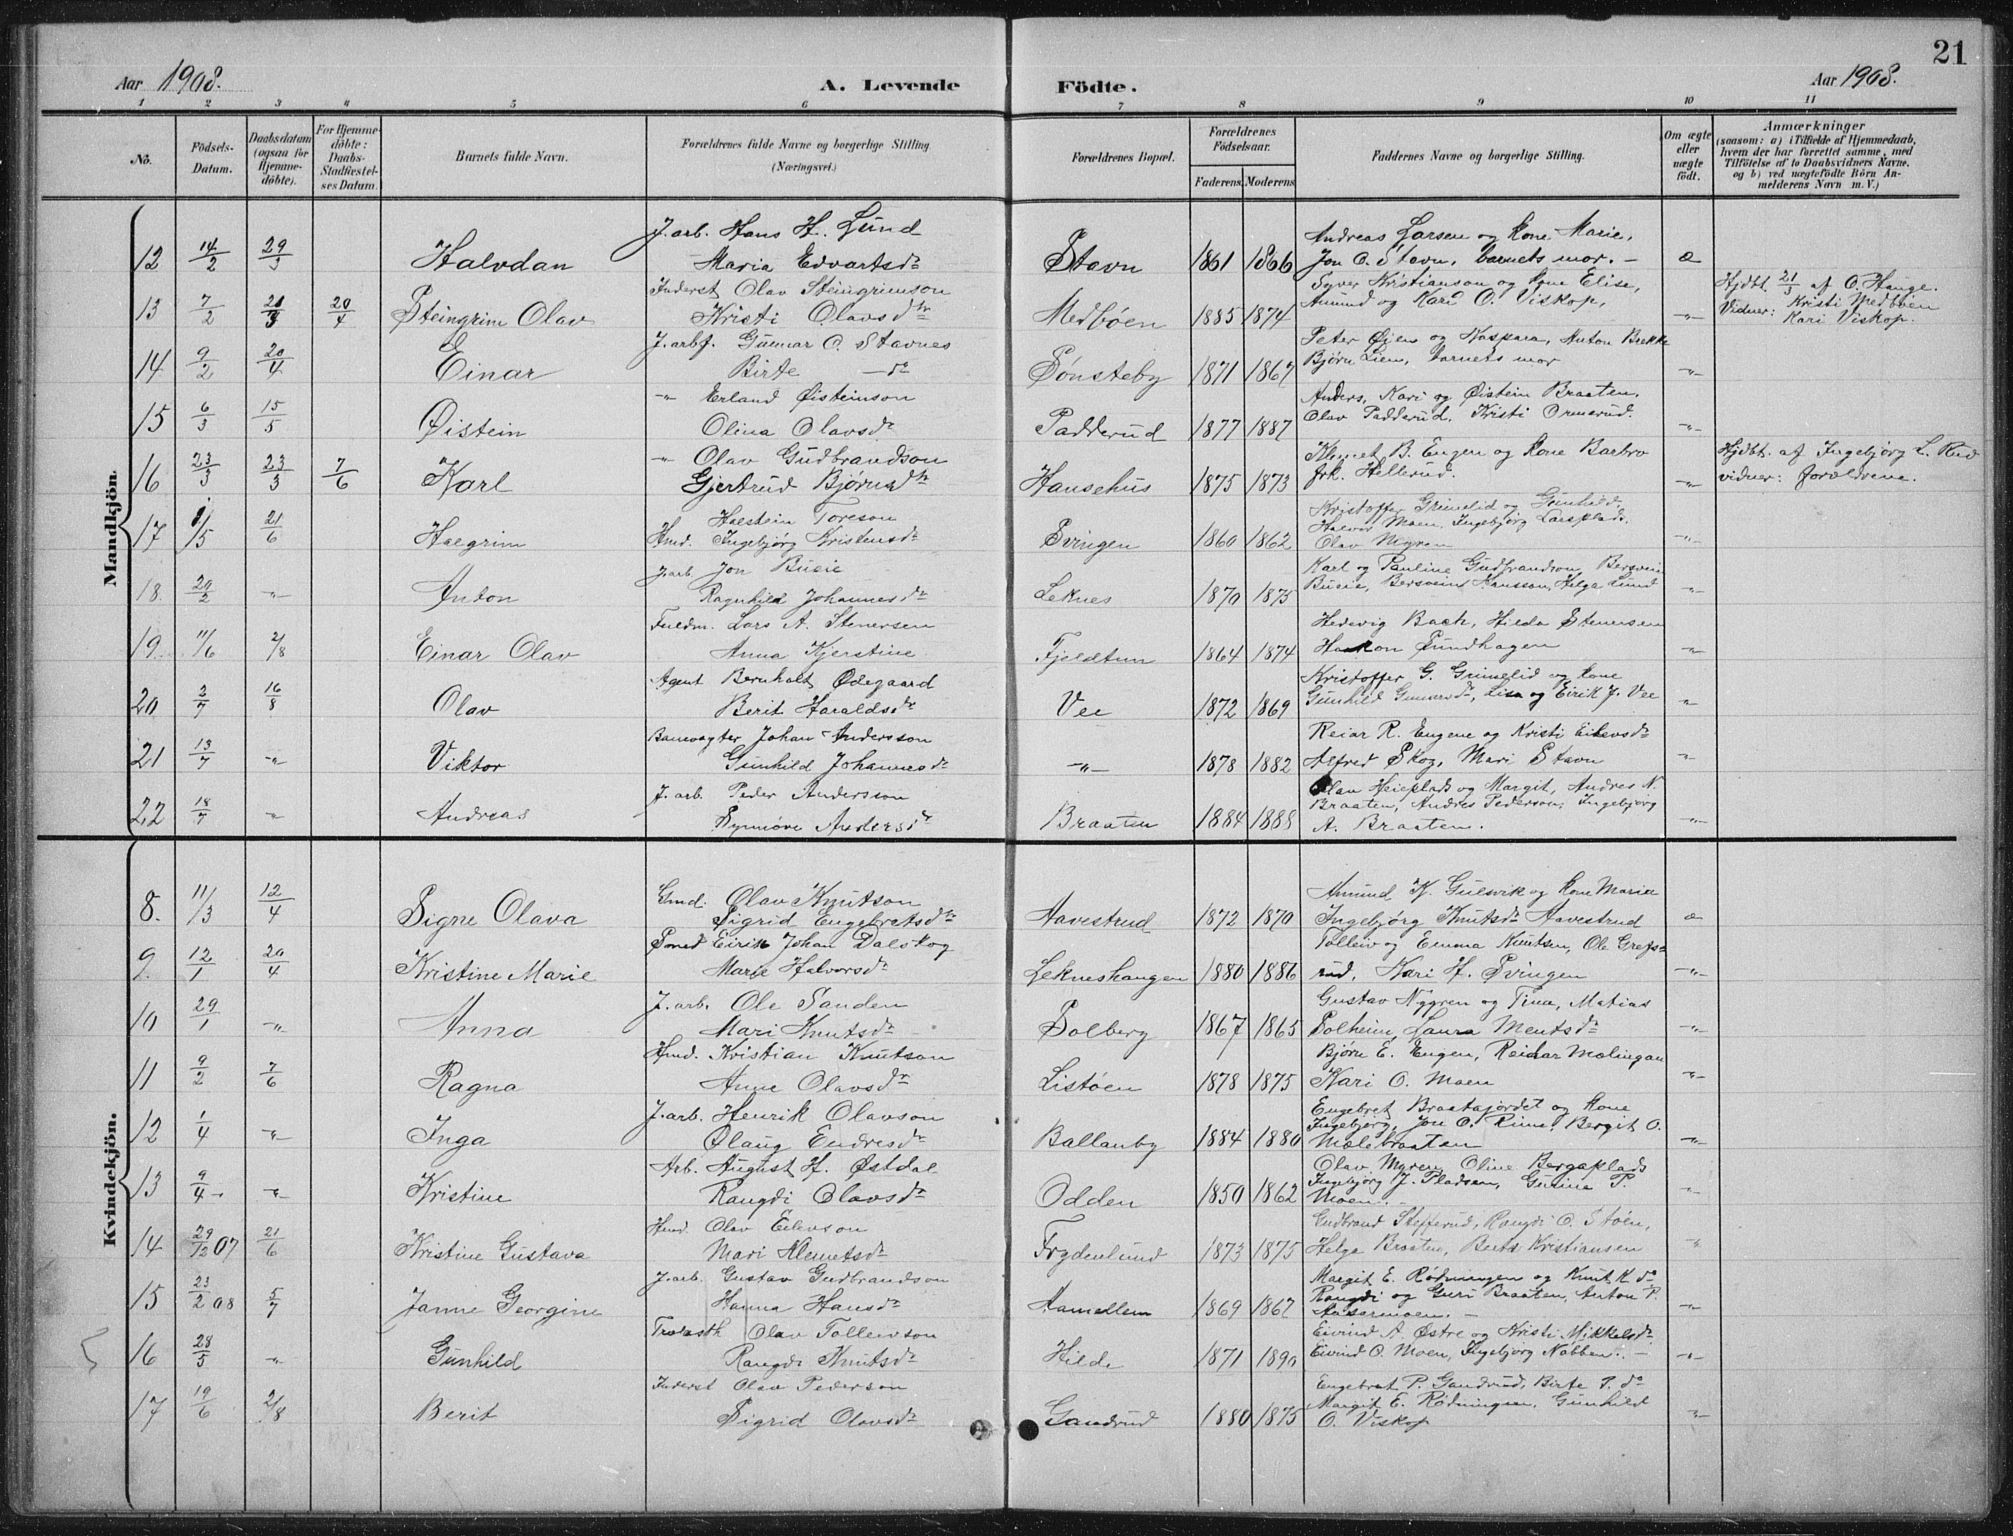 21
Aar 1908.
A. Levende Fødte.
Aar 1908.
1 2 3 4 5 6 7 8 9 10 11
No.
Födsels-Datum.
Daabsdatum (ogsaa för Hjemme-döbte).
For Hjemme-döbte: Daabs-Stadfæstel-ses Datum.
Barnets fulde Navn.
Forældrenes fulde Navne og borgerlige Stilling (Næringsvei.)
Forældrenes Bopæl.
Forældrenes Födselsaar.
Faderens. Moderens.
Faddernes Navne og borgerlige Stilling.
Om ægte eller uægte födt.
Anmærkninger (saasom: a) i Tilfælde af Hjemmedaab, hvem der har forrettet samme, med Tilföielse af to Daabsvidners Navne, og b) ved uægtefödte Börn An-melderens Navn m. V.)
Mandkjön.
J. arb. Hans H. Lund Andreas Larsen og kone Marie,
12 14/2 29/3 Halvdan Maria Edvartsdr Stavn 1861 1866 Jon O. Stavn, barnets mor. —
Inderst Olav Steingrimson Syver Kristianson og kone Elise, Hjdbt. 21/3 af O. Hauge.
13 7/2 21/3 20/4 Steingrim Olav Kristi Olavsdtr Medböen 1885 1874 Amund og Kari O. Viskop, -"- Vidner: Kristi Medböen
Kari Viskop.
J. arbf. Gunnar O. Stavnes Peter Øien og Kaspara, Anton Brekke
14 9/2 20/4 Einar Birte —do Sönsteby 1871 1867 Björn Lien, barnets mor -"-
-"- Erland Øisteinson Anders, Kari og Øistein Braaten,
15 6/3 15/5 Øistein Olina Olavsdr Padderud 1877 1887 Olav Padderud, Kristi Ormerud. -"-
-"- Olav Gudbrandson Klemet B. Engen og kone Barbro Hjdbt. af Ingebjörg L. Rud
16 23/3 23/3 7/6 Karl Gjertrud Björnsdtr Hansehus 1875 1873 frk. Hellerud. -"- vidner: foreldrene.
Halstein Toreson Kristoffer Grimelid og Gunhild.
17 1/5 21/6 Halgrim Hmd. Ingebjörg Kristensdr Svingen 1860 1862 Halvor Moen, Ingebjörg Larsplads. -"-
Olav Myren
J. arb. Jon Bueie Karl og Pauline Gudbrandson, Bersvein
18 29/2 -"- Anton Ragnhild Johannesdr Leknes 1870 1875 Bueie, Bersvein Hansson, Helga Lund -"-
Fuldm. Lars A. Stenersen Hedevig Bach, Hilda Stenersen
19 11/6 2/8 Einar Olav Anna Kjerstine Fjeldtun 1864 1874 Haakon Sundhagen -"-
Agent Bernholt Ødegaard Kristoffer G. Grimelid og kone
20 2/7 16/8 Olav Berit Haraldsdr Vee 1872 1869 Gunhild Gunnarsdr, Lisa og Eirik J. Vee -"-
Banevogter Johan Andersson Reiar R. Engene og Kristi Eilevsdr
21 13/7 -"- Viktor Gunhild Johannesdr -"- 1878 1882 Alfred Skog, Mari Stavn -"-
J. arb. Peder Andersson Olav Heieplads og Margit, Andres N.
22 18/7 -"- Andreas Synnöve Andersdr Braaten 1884 1888 Braaten, Andres Pederson, Ingebjörg -"-
A. Braaten.
Kvindekjön.
Gmd. Olav Knutson Amund K. Gulsvik og kone Maria
8. 11/3 12/4 Signe Olava Sigrid Engebretsdtr Aavestrud 1872 1870 Ingebjörg Knutsdr Aavestrud
Smed Eirik Johan Dalskog Tolleiv og Emma Knutsen, Ole Grefs-
9. 12/1 20/4 Kristine Marie Marie Halvorsdr Lekneshaugen 1880 1886 rud, Kari H. Svingen -"-
J. arb. Ole Sanden Gustav Nygren og Tina, Matias
10 29/1 -"- Anna Mari Knutsdr Solberg 1867 1865 Solheim, Laura Mentsdr -"-
Hmd. Kristian Knutson Björn E. Engen, Reidar Medlingan
11 9/2 7/6 Ragna Anne Olavsdr Listöen 1878 1875 Kari O. Moen -"-
J. arb. Henrik Olavson Engebret Braatajordet og kone
12 1/4 -"- Inga Olaug Endresdr Ballanby 1884 1880 Ingebjörg, Jon O. Rime, Bergit O. -"-
Mælebraaten
Arb. August H. Østdal Olav Myren, Oline Bergaplads
13 9/4 -"- Kristine Rangdi Olavsdr Odden 1850 1862 Ingebjörg J. Pladsen, Gurina P. -"-
Moen.
Hmd. Olav Eilevson Gudbrand Stefferud, Rangdi O. Stöen,
14 29/12 07 21/6 Kristine Gustava Mari Klemetsdr Frydenlund 1873 1875 Helga Braaten, Berta Kristiansen -"-
J. arb. Gustav Gudbrandson Margit E. Rödningen og Knut K. do
15 23/2 08 5/7 Janne Georgine Hanna Hansdr Hamellem 1869 1867 Rangdi og Guri Braaten, Anton P. -"-
Olav Tolleivson Eivind A. Østre og Kristi Mikkelsdr
16 28/5 -"- Gunhild Rangdi Knutsdr Hilde 1871 1890 Eivind O. Moen, Ingebjörg Nabben. — -"-
Inderst Olav Pederson Engebret P. Gandrud, Birte P. do
17 19/6 2/8 Berit Sigrid Olavsdr Gandrud 1880 1875 Margit E. Rödningen, Gunhild -"-
O. Viskop